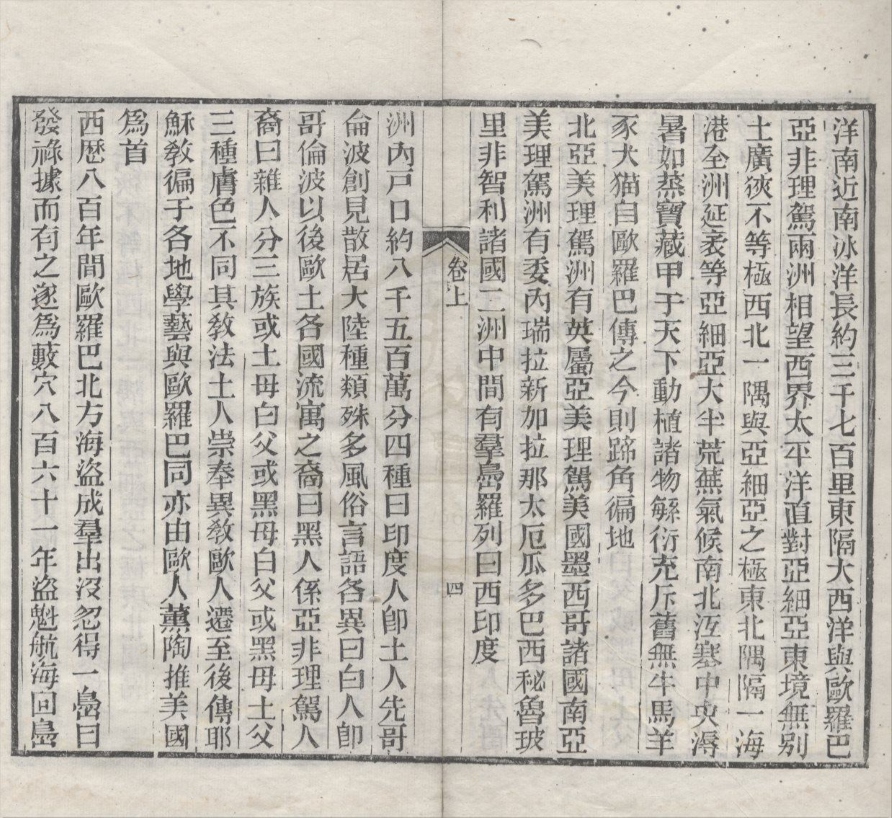 洋南近南冰洋長約三千七百里東隔大西洋與歐羅巴
亞非理駕兩洲相望西界太平洋直對亞細亞東境無別
土廣狹不等極西北一隅與亞細亞之極東北隅隔一海
港全洲延袤等亞細亞大半荒蕪氣候南北沍寒中央溽
暑如蒸寶藏甲于天下動植諸物緐衍充斥舊無牛馬羊
豕犬猫自歐羅巴傳之今則蹄角徧地
北亞美理駕洲有英屬亞美理駕美國墨西哥諸國南亞
美理駕洲有委內瑞拉新加拉那太厄瓜多巴西秘魯玻
里非智利諸國二洲中間有羣㠀羅列曰西印度
卷上
四
洲內戸口約八千五百萬分四種曰印度人卽土人先哥
倫波創見散居大陸種類殊多風俗言語各異曰白人卽
哥倫波以後歐土各國流寓之裔曰黑人係亞非理駕人
裔曰雜人分三族或土母白父或黑母白父或黑母土父
三種膚色不同其敎法土人崇奉異敎歐人遷至後傳耶
穌敎徧于各地學藝與歐羅巴同亦由歐人薰陶推美國
爲首
西歷八百年間歐羅巴北方海盜成羣出沒忽得一㠀曰
發祿據而有之遂爲藪穴八百六十一年盜魁航海回㠀